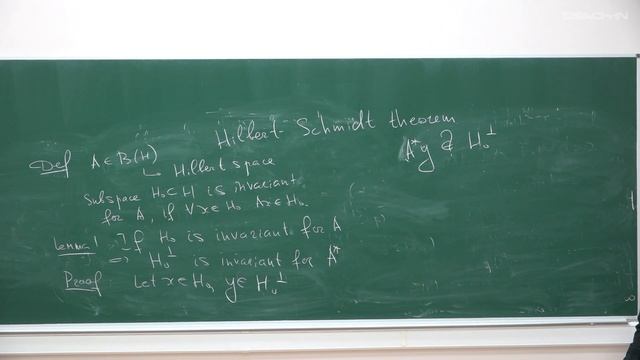 Hilbert-Schmidt theorem
Def A ∈ B(H)
↳ Hilbert space
Subspace H₀ ⊂ H is invariant
for A, if ∀x ∈ H₀ Ax ∈ H₀.
Lemma 1 If H₀ is invariant for A
⇒ H₀^⊥ is invariant for A*
Proof Let x ∈ H₀, y ∈ H₀^⊥
A*y ∂ H₀^⊥